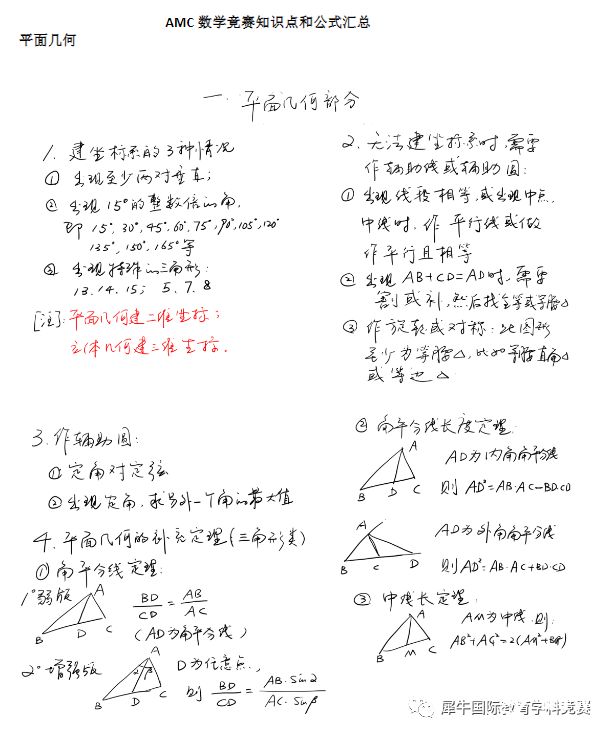 AMC 数学竞赛知识点和公式汇总
平面几何
一. 平面几何部分
1. 建坐标系的3种情况
① 出现至少两对垂直;
② 出现15°的整数倍的角,
即 15°, 30°, 45°, 60°, 75°, 90°, 105°, 120°
135°, 150°, 165° 等
③ 出现特殊的三角形:
13. 14. 15; 5. 7. 8
[注]: 平面几何建二维坐标;
立体几何建三维坐标.
2. 无法建坐标系时, 需要
作辅助线或辅助圆:
① 出现线段相等, 或出现中点,
中线时, 作平行线或做
作平行且相等
② 出现 AB+CD=AD时, 需要
割或补, 然后找全等或等腰△
③ 作旋转或对称: 此图形
至少为等腰△, 比如等腰直角△
或等边△
3. 作辅助圆:
① 定角对定弦
② 出现定角, 求另外一个角的最大值
4. 平面几何的补充定理(三角形类)
① 角平分线定理:
1°弱版
A
B D C
BD/CD = AB/AC
(AD为角平分线)
2°增强版
A
2 β
B D C
D为任意点,
则 BD/CD = AB·Sin2/AC·Sinβ
② 角平分线长度定理:
A
B D C
AD为内角角平分线
则 AD²=AB·AC-BD·CD
A
B C D
AD为外角角平分线
则AD²=AB·AC+BD·CD
③ 中线长定理:
A
B M C
AM为中线, 则:
AB²+AC²=2(AM²+BM²)
犀牛国际教育学科竞赛